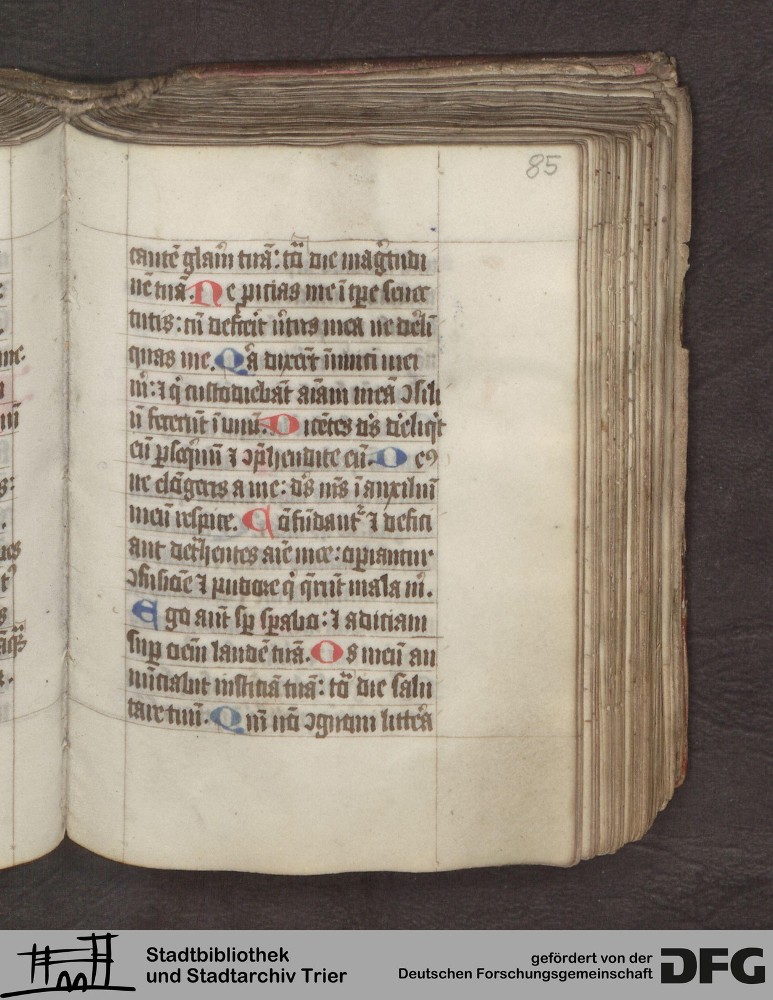 85
cantē glaīm tuā: tā die magͥtudi
nē tuā. Ne ꝓitias me ī tp̄e senec
tutis: cū defecͥit v̄tus mea ne dēli
quas me. Qͥa dixer̄t īimici mei
m̄: ⁊ qͥ custodiebāt aīam meā ↄsili
ū fecerūt ī unū. Dicētes ds̄ dēliqͥt
eū ꝑseqͥmī ⁊ ↄp̄hendite eū. De⁹
ne elōgeris a me: ds̄ m̄s ī auxiliū
meū respice. Cōfūdant᷑ ⁊ defici
ant det̄hentes aīe mee: oꝑiantur
ↄfusiōe ⁊ pudore qͥ qͣrūt mala m̄.
Ego aūt sꝑ sꝑabo: ⁊ adiciam
suꝑ oēm laudē tuā. Os meū an
nūciabit iustitiā tuā: tā die salu
tare tuū. Qm̄ nō ↄgnoui littͤra
Stadtbibliothek
und Stadtarchiv Trier
gefördert von der
Deutschen Forschungsgemeinschaft
DFG